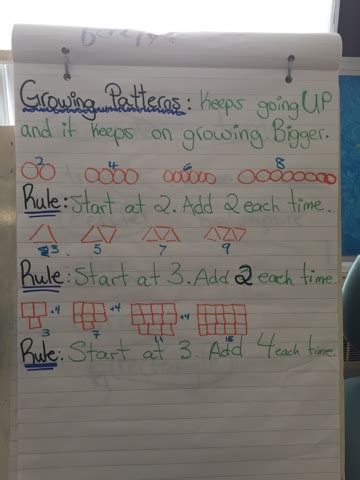 Growing Patterns: Keeps going UP
and it keeps on growing. Bigger.
2 4 6 8
Rule: Start at 2. Add 2 each time.
3 5 7 9
Rule: Start at 3. Add 2 each time.
+4 +4 +4
3 7 11 15
Rule: Start at 3. Add 4 each time.